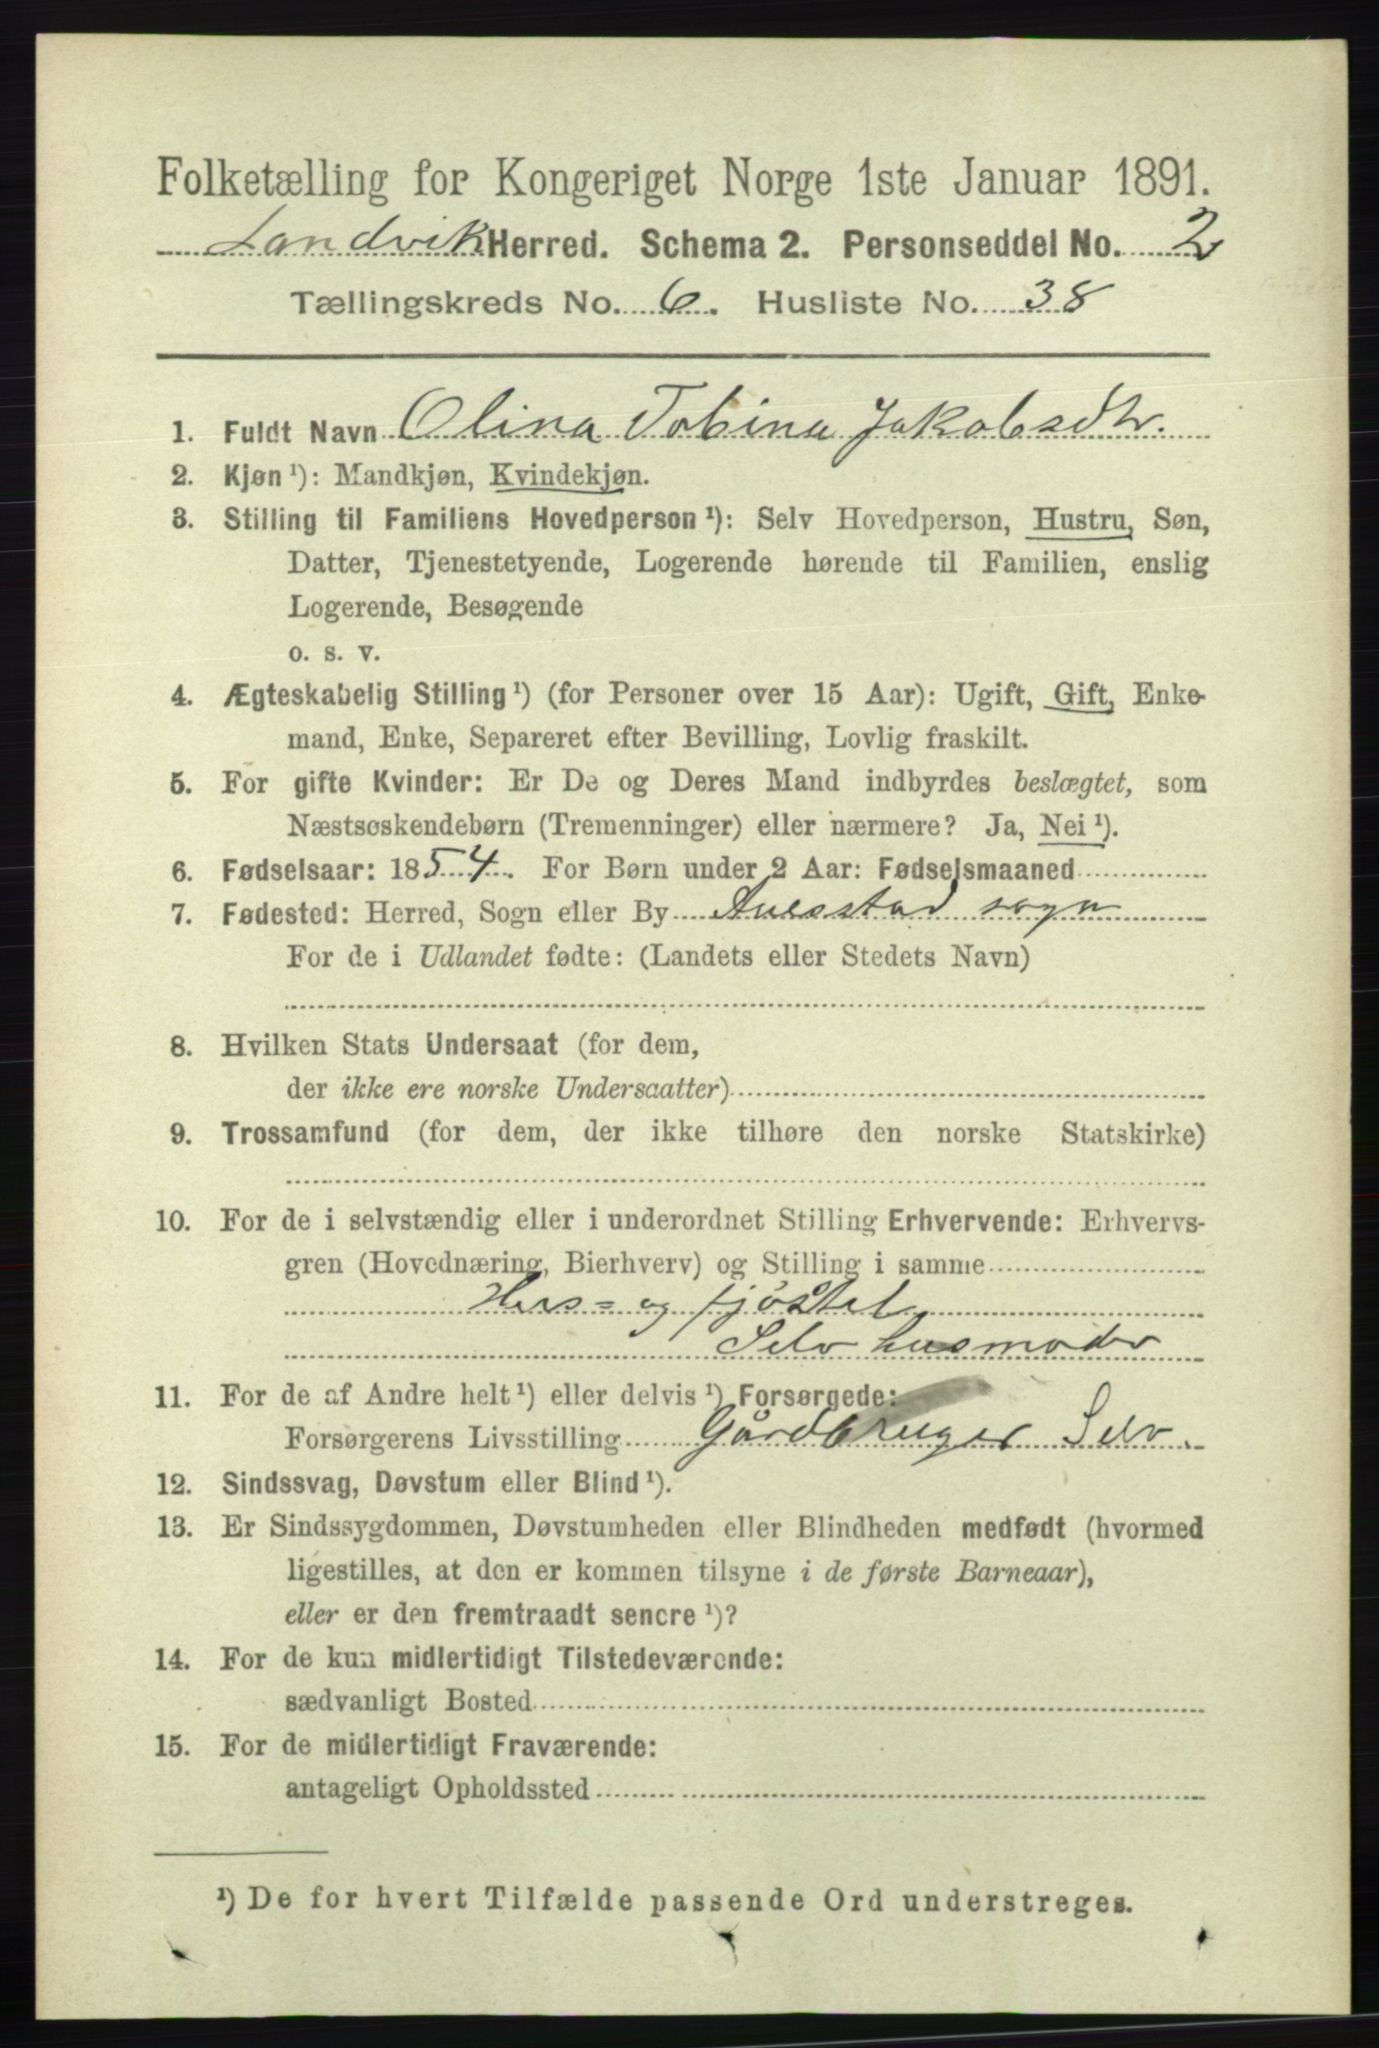 Folketælling for Kongeriget Norge 1ste Januar 1891.
Landvik Herred. Schema 2. Personseddel No. 2
Tællingskreds No. 6. Husliste No. 38
1. Fuldt Navn Olina Tobine Jakobsdtr.
2. Kjøn ¹): Mandkjøn, Kvindekjøn.
3. Stilling til Familiens Hovedperson ¹): Selv Hovedperson, Hustru, Søn,
Datter, Tjenestetyende, Logerende hørende til Familien, enslig
Logerende, Besøgende
o. s. v.
4. Ægteskabelig Stilling ¹) (for Personer over 15 Aar): Ugift, Gift, Enke-
mand, Enke, Separeret efter Bevilling, Lovlig fraskilt.
5. For gifte Kvinder: Er De og Deres Mand indbyrdes beslægtet, som
Næstsøskendebørn (Tremenninger) eller nærmere? Ja, Nei ¹).
6. Fødselsaar: 1854. For Børn under 2 Aar: Fødselsmaaned
7. Fødested: Herred, Sogn eller By sogn
For de i Udlandet fødte: (Landets eller Stedets Navn)
8. Hvilken Stats Undersaat (for dem,
der ikke ere norske Undersaatter)
9. Trossamfund (for dem, der ikke tilhøre den norske Statskirke)
10. For de i selvstændig eller i underordnet Stilling Erhvervende: Erhvervs-
gren (Hovednæring, Bierhverv) og Stilling i samme
Hus- og fjøstel
Selv husmoder
11. For de af Andre helt ¹) eller delvis ¹) Forsørgede:
Forsørgerens Livsstilling Gårdbruger Selv.
12. Sindssvag, Døvstum eller Blind ¹).
13. Er Sindssygdommen, Døvstumheden eller Blindheden medfødt (hvormed
ligestilles, at den er kommen tilsyne i de første Barneaar),
eller er den fremtraadt senere ¹)?
14. For de kun midlertidigt Tilstedeværende:
sædvanligt Bosted
15. For de midlertidigt Fraværende:
antageligt Opholdssted
¹) De for hvert Tilfælde passende Ord understreges.